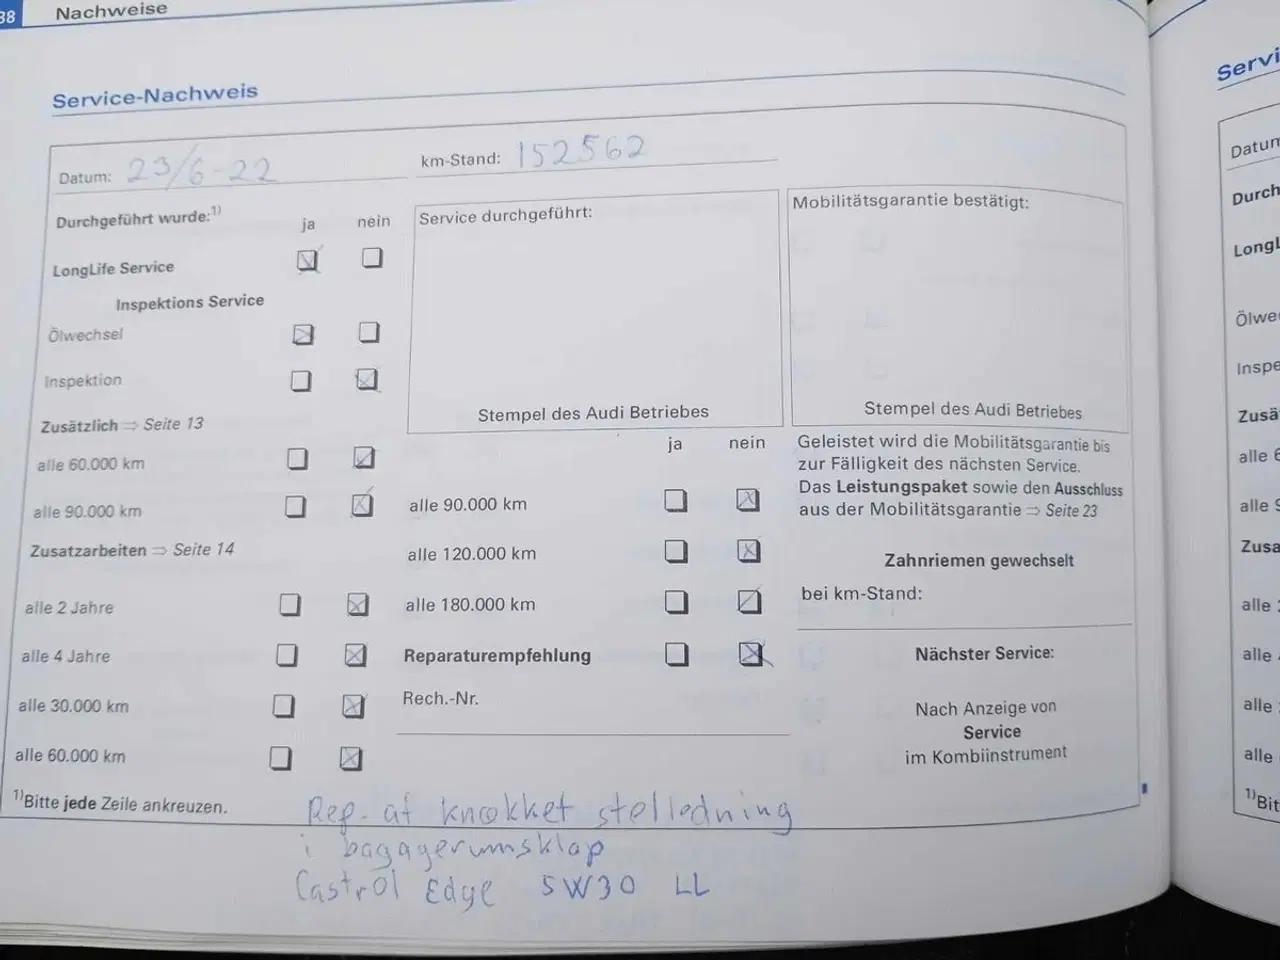 38 Nachweise
Service-Nachweis
Datum: 23/6-22
km-Stand: 152562
Durchgeführt wurde:1) ja nein
LongLife Service
Inspektions Service
Ölwechsel
Inspektion
Zusätzlich ⇒ Seite 13
alle 60.000 km
alle 90.000 km
Zusatzarbeiten ⇒ Seite 14
alle 2 Jahre
alle 4 Jahre
alle 30.000 km
alle 60.000 km
1)Bitte jede Zeile ankreuzen.
Service durchgeführt:
Stempel des Audi Betriebes
ja nein
alle 90.000 km
alle 120.000 km
alle 180.000 km
Reparaturempfehlung
Rech.-Nr.
Mobilitätsgarantie bestätigt:
Stempel des Audi Betriebes
Geleistet wird die Mobilitätsgarantie bis
zur Fälligkeit des nächsten Service.
Das Leistungspaket sowie den Ausschluss
aus der Mobilitätsgarantie ⇒ Seite 23
Zahnriemen gewechselt
bei km-Stand:
Nächster Service:
Nach Anzeige von
Service
im Kombiinstrument
Rep. af knækket stelledning
i bagagerumsklap
Castrol Edge 5W30 LL
Servi
Datum
Durch
LongL
Ölwe
Inspe
Zusä
alle 6
alle 9
Zusa
alle
alle
alle
alle
1)Bit